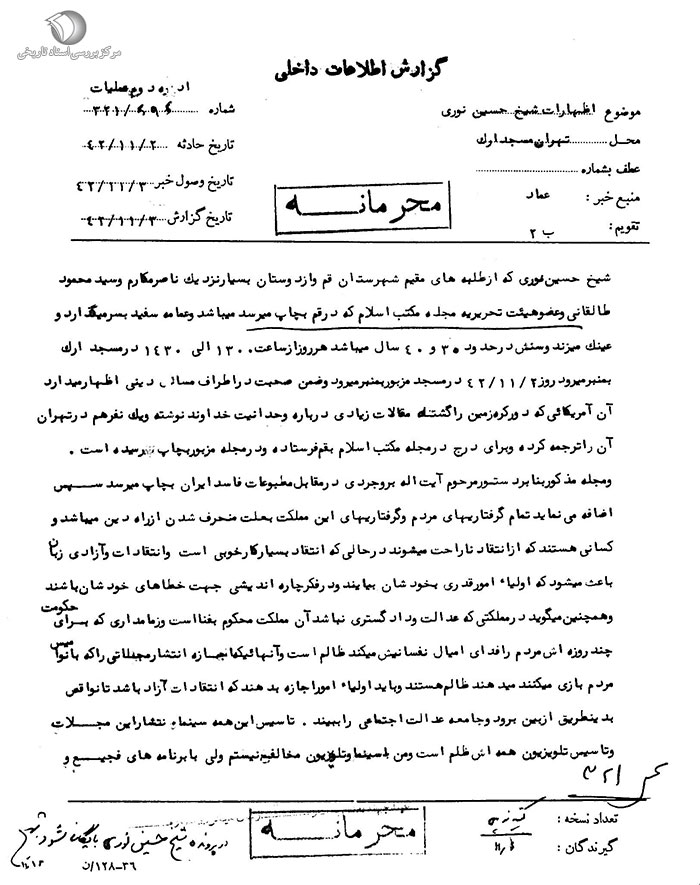 مرکز بررسی اسناد تاریخی
گزارش اطلاعات داخلی
اداره دوم عملیات
موضوع اظهارات شیخ حسین نوری
شماره ۳۲۱/
محل تهران مسجد ارك
تاریخ حادثه ۴۲/۱۱/۲
عطف بشماره
تاریخ وصول خبر ۴۲/۱۱/۳
منبع خبر : عماد
تاریخ گزارش ۴۲/۱۱/۳
تقویم : ب ۲
محرمانه
شیخ حسین نوری که از طلبه های مقیم شهرستان قم و از دوستان بسیار نزدیك ناصر مکارم و سید محمود
طالقانی و عضو هیئت تحریریه مجله مکتب اسلام که در قم بچاپ میرسد میباشد و عمامه سفید بسر میگذارد و
عینك میزند و سنش در حدود ۳۵ و ۴۰ سال میباشد هر روز از ساعت ۱۳۰۰ الی ۱۴۳۰ در مسجد ارك
بمنبر میرود روز ۴۲/۱۱/۲ در مسجد مزبور بمنبر میرود و ضمن صحبت در اطراف مسائل دینی اظهار میدارد
آن آمریکائی که دور کره زمین را گشته مقالات زیادی درباره وحدانیت خداوند نوشته و یك نفر هم در تهران
آن را ترجمه کرده و برای درج در مجله مکتب اسلام بقم فرستاده و در مجله مزبور بچاپ نرسیده است .
و مجله مذکور بنا بر دستور مرحوم آیت اله بروجردی در مقابل مطبوعات فاسد ایران بچاپ میرسد سپس
اضافه می نماید تمام گرفتاریهای مردم و گرفتاریهای این مملکت بعلت منحرف شدن از راه دین میباشد و
کسانی هستند که از انتقاد ناراحت میشوند در حالی که انتقاد بسیار کار خوبی است و انتقادات و آزادی زبان
باعث میشود که اولیاء امور قدری بخودشان بیایند و در فکر چاره اندیشی جهت خطاهای خودشان باشند
و همچنین میگوید در مملکتی که عدالت و دادگستری نباشد آن مملکت محکوم بفنا است و زمامداری که برای حکومت
چند روزه اش مردم را فدای امیال نفسانیش میکند ظالم است و آنهائیکه اجازه انتشار مجلاتی را که با نوامیس
مردم بازی میکنند میدهند ظالم هستند و باید اولیاء امور اجازه بدهند که انتقادات آزاد باشد تا نواقص
بدینطریق از بین برود و جامعه عدالت اجتماعی را ببیند . تاسیس این همه سینما و انتشار این مجلات
و تاسیس تلویزیون همه اش ظلم است و من با سینما و تلویزیون مخالف نیستم ولی با برنامه های فجیع و
۳۲۱
تعداد نسخه :
گیرندگان :
محرمانه
در پرونده شیخ حسین نوری بایگانی شود
۱۲۸-۳۶/ن